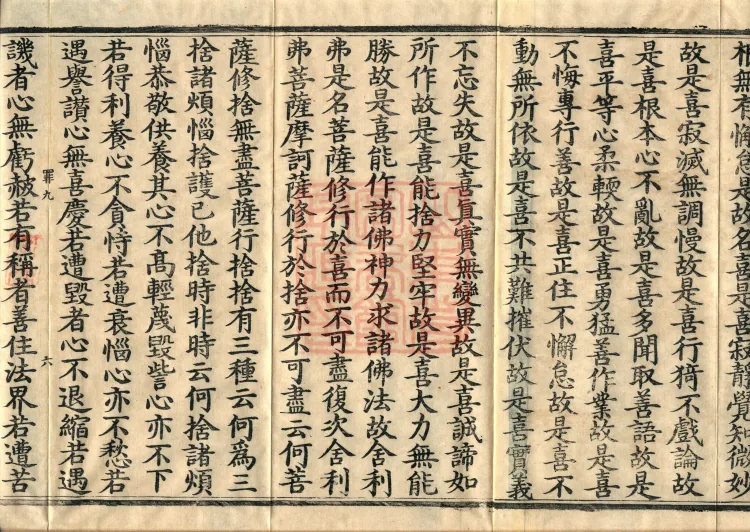 根無有懈怠是故名喜是喜寂靜覺知微妙
故是喜寂滅無調慢故是喜行猗不戲論故
是喜根本心不亂故是喜多聞取善語故是
喜平等心柔輭故是喜勇猛善作業故是喜
不悔專行善故是喜正住不懈怠故是喜不
動無所依故是喜不共難摧伏故是喜實義
不忘失故是喜真實無變異故是喜誠諦如
所作故是喜能捨力堅牢故是喜大力無能
勝故是喜能作諸佛神力求諸佛法故舍利
弗是名菩薩修行於喜而不可盡復次舍利
弗菩薩摩訶薩修行於捨亦不可盡云何菩
薩修捨無盡菩薩行捨捨有三種云何為三
捨諸煩惱捨護已他捨時非時云何捨諸煩
惱恭敬供養其心不高輕蔑毀訾心亦不下
若得利養心不貪恃若遭衰惱心亦不愁若
遇譽讚心無喜慶若遭毀者心不退縮若遇
罪九
六
譏者心無虧赦若有稱者善住法界若遭苦